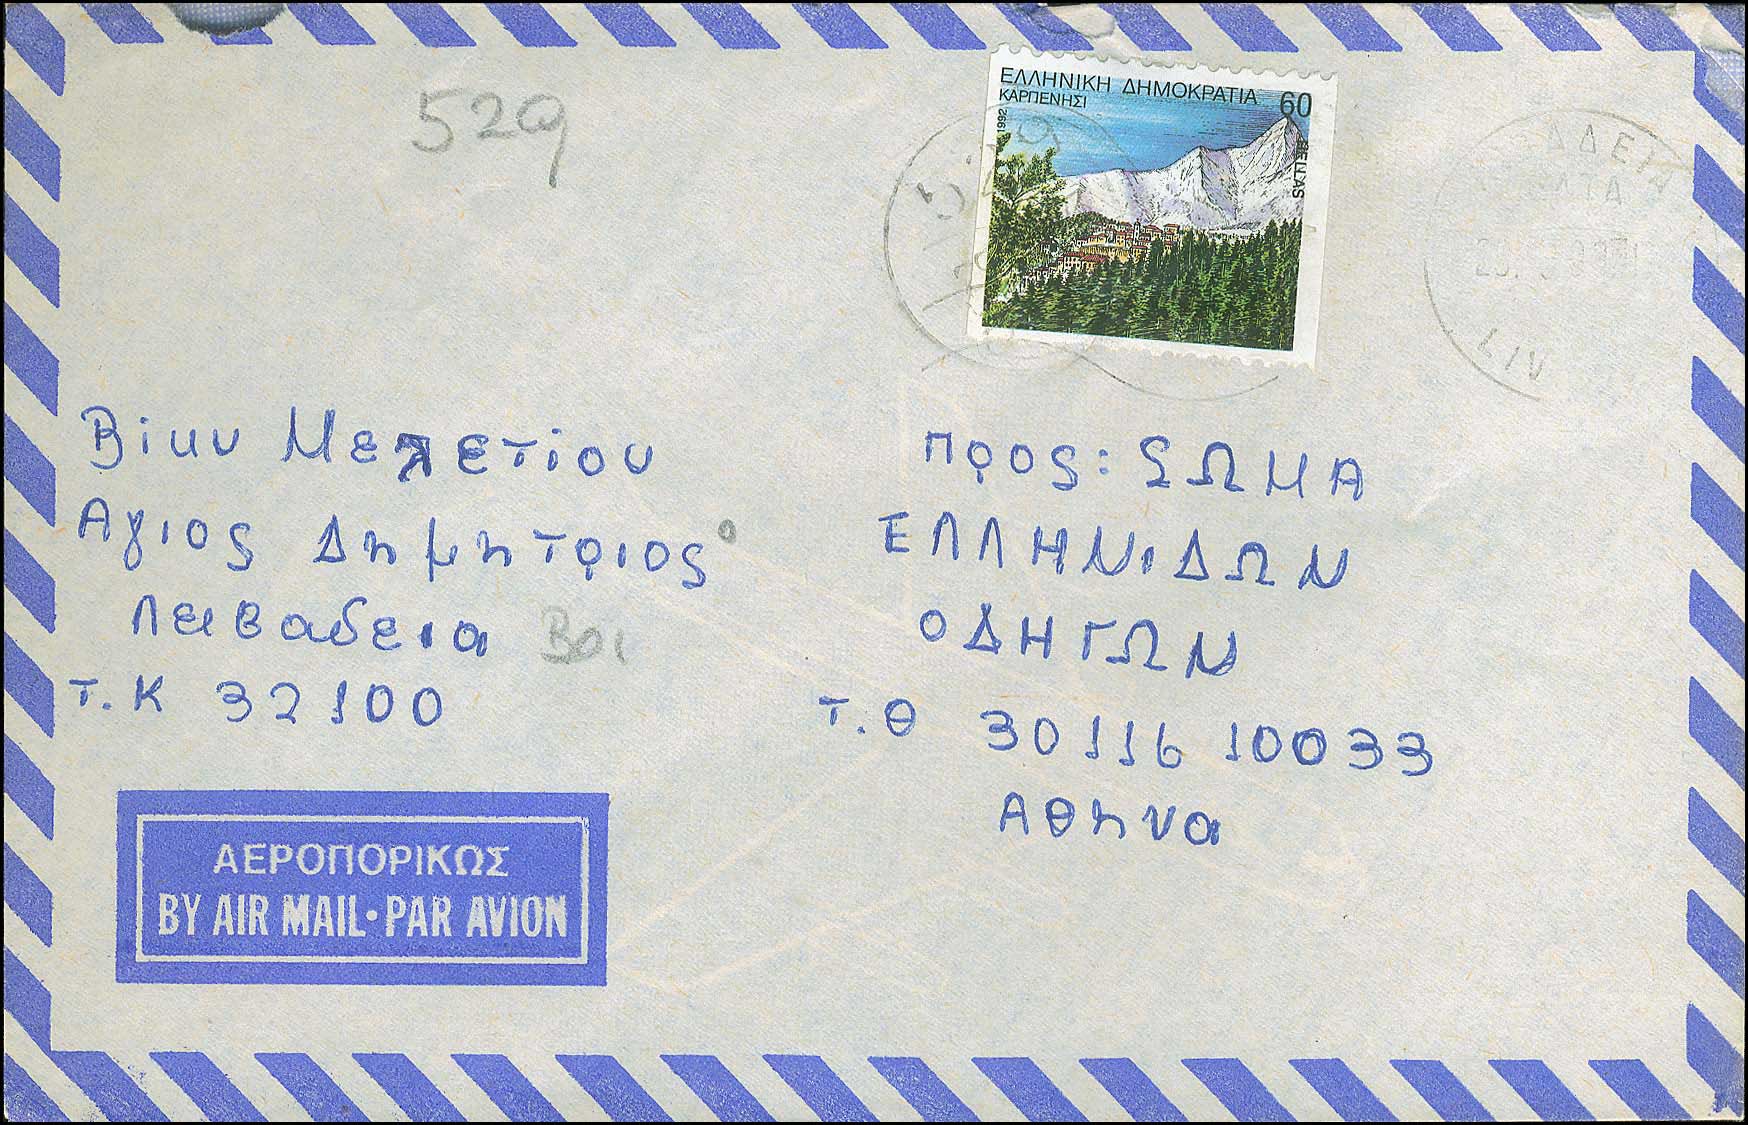 529
ΕΛΛΗΝΙΚΗ ΔΗΜΟΚΡΑΤΙΑ 60
ΚΑΡΠΕΝΗΣΙ
1992
HELLAS
LIV
Βίκυ Μελετίου
Αγιος Δημητριος
Λειβαδεια Βοι
Τ.Κ 32100
προς: ΣΩΜΑ
ΕΛΛΗΝΙΔΩΝ
ΟΔΗΓΩΝ
Τ.Θ 30116 10033
Αθηνα
ΑΕΡΟΠΟΡΙΚΩΣ
BY AIR MAIL·PAR AVION